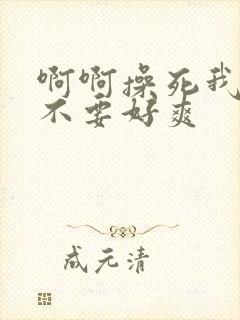 啊啊操死我
不要好爽
成元清